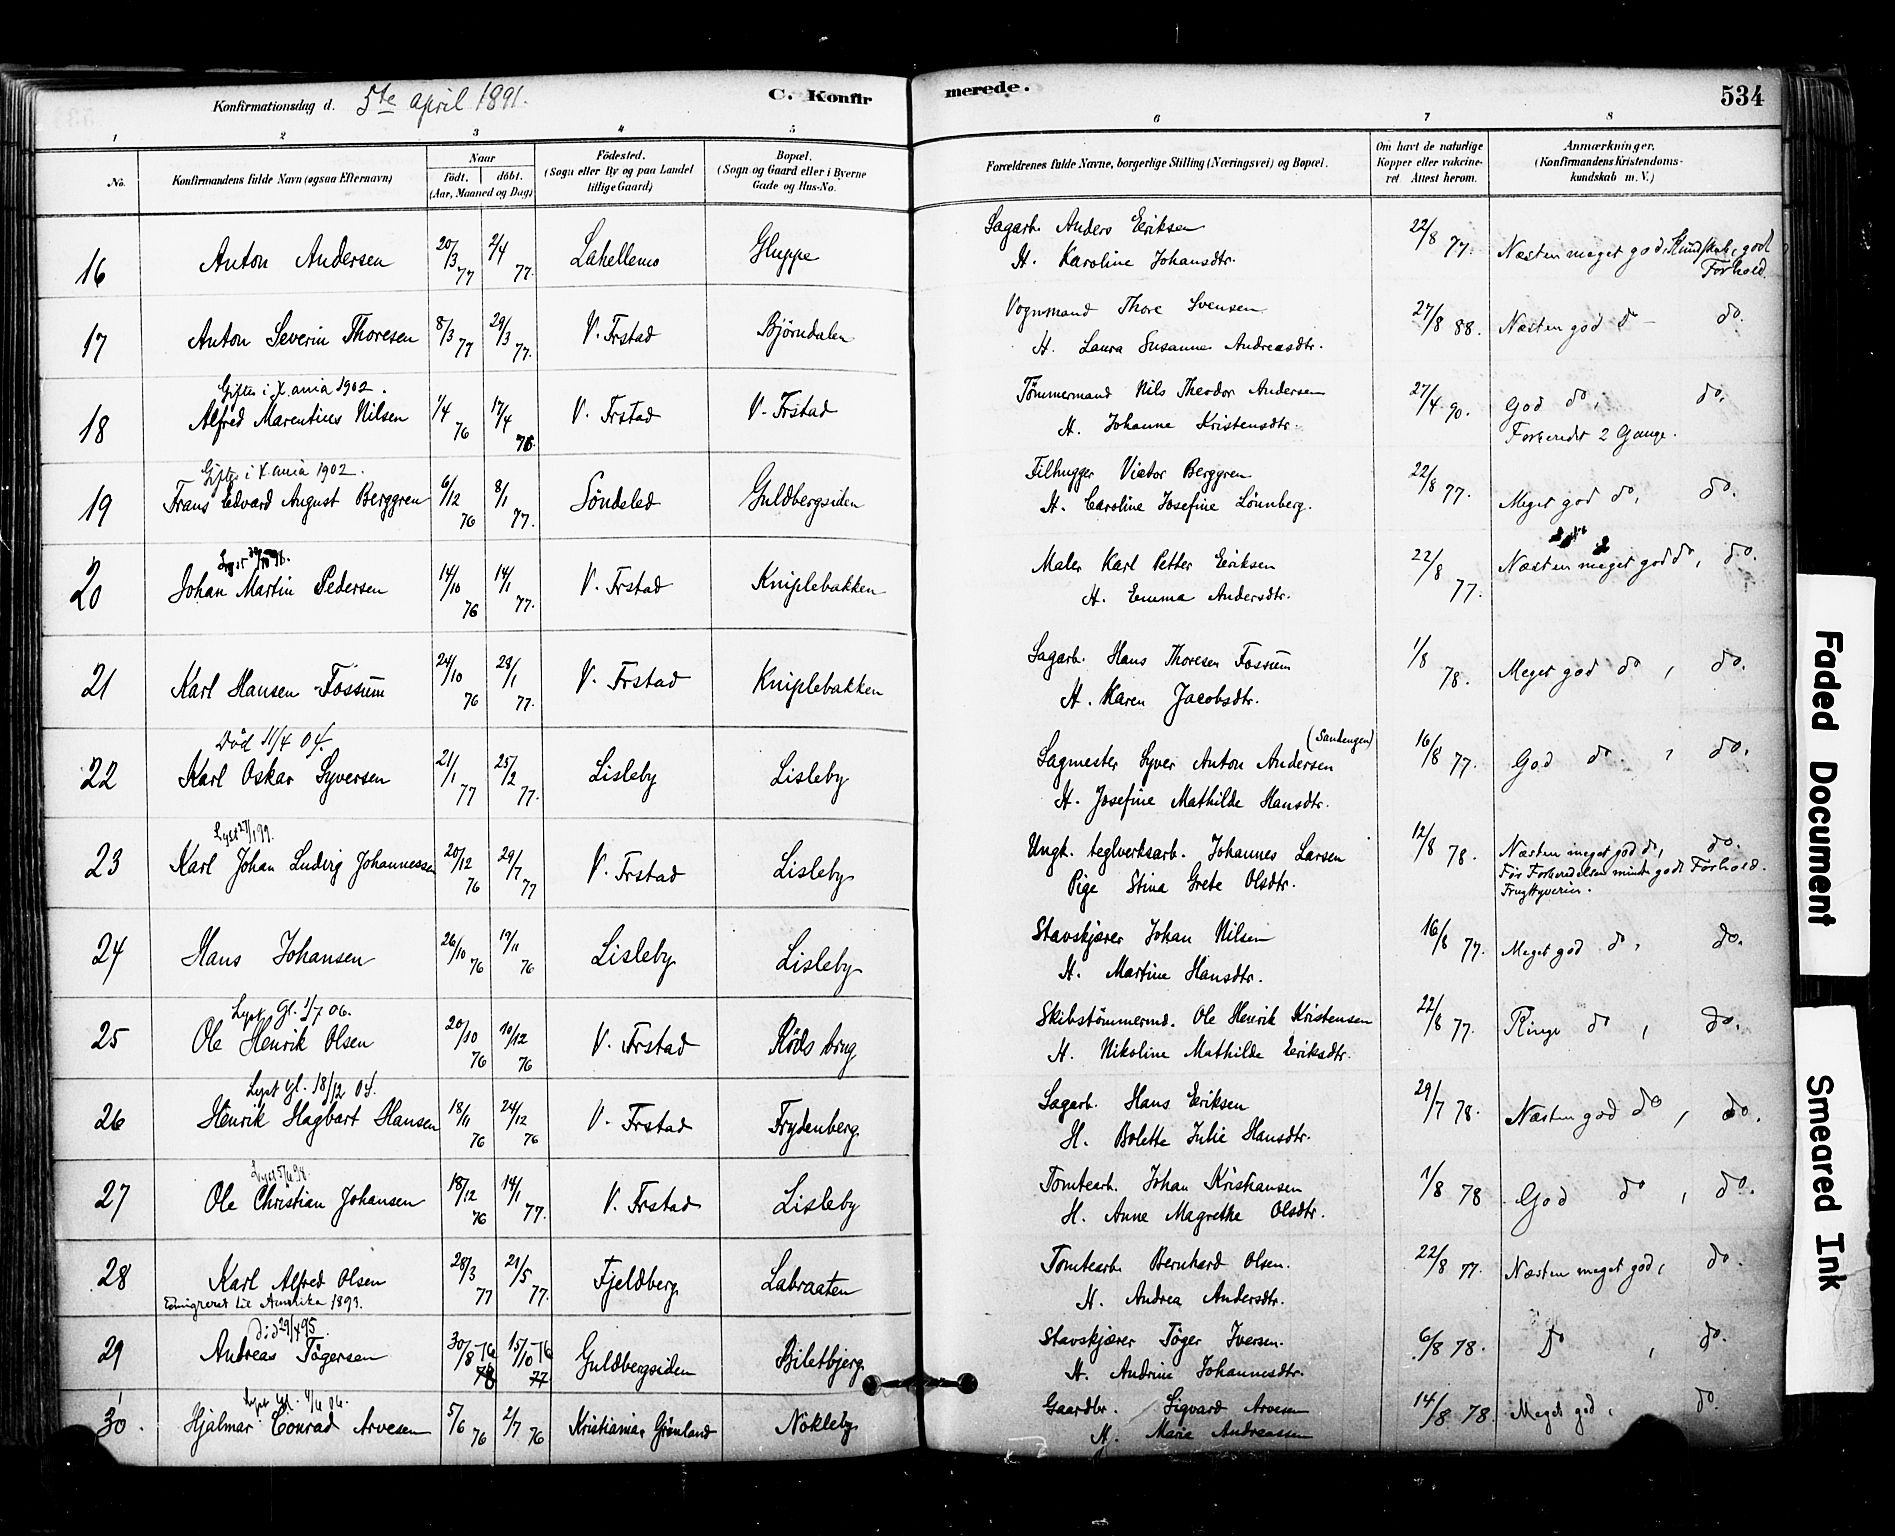 Konfirmationsdag d. 5te april 1891. C. Konfirmerede. 534
1 2 3 4 5 6 7 8
No. Konfirmandens fulde Navn (ogsaa Efternavn) Naar født. døbt. (Aar, Maaned og Dag) Fødested. (Sogn eller By og paa Landet tillige Gaard) Bopæl. (Sogn og Gaard eller i Byerne Gade og Hus-No. Forældrenes fulde Navne, borgerlige Stilling (Næringsvei) og Bopæl. Om havt de naturlige Kopper eller vakcineret. Attest herom. Anmærkninger. (Konfirmandens Kristendomskundskab m. V.)
16 Anton Andersen 20/3 77 2/4 77. Lahellemo Gluppe Sagarb. Anders Eriksen 22/8 77. Næsten meget god Kundskab, godt Forhold.
H. Karoline Johansdtr.
17 Anton Severin Thoresen 8/3 77 29/3 77. V. Frstad Bjørndalen Vognmand Thore Svensen 27/8 88. Næsten god do do.
H. Laura Susanne Andreasdtr.
Gifter i X.ania 1902.
18 Alfred Marentius Nilsen 1/4 76 17/4 76. V. Frstad V. Frstad Tømmermand Nils Theodor Andersen 27/4 90. God do, do.
H. Johanne Kristensdtr. Forberedt 2 Gange.
Gifter i X.ania 1902.
19 Frans Edvard August Berggren 6/12 76 8/1 77. Søndeled Guldbergsiden Filhugger Victor Berggren 22/8 77. Meget god do, do.
H. Caroline Josefine Lønnberg.
20 Johan Martin Pedersen 14/10 76 14/1 77. V. Frstad Kniplebakken Maler Karl Petter Eriksen 22/8 77. Næsten meget god do, do.
H. Emma Andersdtr.
21 Karl Hansen Fossum 24/10 76 28/1 77. V. Frstad Kniplebakken Sagarb. Hans Thoresen Fossum 1/8 78. Meget god do, do.
H. Karen Jacobsdtr.
Død 11/4 04. (Sandengen)
22 Karl Oskar Syversen 21/1 77 25/2 77. Lisleby Lisleby Sagmester Syver Anton Andersen 16/8 77. God do, do.
H. Josefine Mathilde Hansdtr.
Lyst 27/1 99.
23 Karl Johan Ludvig Johannessen 20/12 76 29/7 77 V. Frstad Lisleby Ungk. teglverksarb. Johannes Larsen 12/8 78. Næsten meget god do, do.
Pige Stina Grete Olsdtr. Før Forberedelsen mindre godt Forhold.
Frugttyverier.
24 Hans Johansen 26/10 76 19/11 76 Lisleby Lisleby Stavskjærer Johan Nilsen 16/8 77. Meget god do, do.
H. Martine Hansdtr.
Lyst Gl. 1/7 06.
25 Ole Henrik Olsen 20/10 76 10/12 76 V. Frstad Røds brug Skibstømmermd. Ole Henrik Kristensen 22/8 77. Ringe do, do.
H. Nikoline Mathilde Eriksdtr.
Lyst gl. 18/12 04.
26 Henrik Hagbart Hansen 18/11 76 24/12 76 V. Frstad Frydenberg Sagarb. Hans Eriksen 29/7 78. Næsten god do, do.
H. Bolette Julie Hansdtr.
Lyst 5/6 98.
27 Ole Christian Johansen 18/12 76 14/1 77. V. Frstad Lisleby Tomtearb. Johan Kristiansen 1/8 78 God do, do.
H. Anne Magrethe Olsdtr.
28 Karl Alfred Olsen 28/3 77 21/5 77. Fjeldberg Labraaten Tomtearb. Bernhard Olsen. 22/8 77. Næsten meget god, do.
Emigreret til Amerika 1893. H. Andrea Andersdtr.
Død 29/4 95.
29 Andreas Tøgersen 30/8 76 78 15/10 76 77 Guldbergsiden Biletbjerg Stavskjærer Tøger Iversen. 6/8 78. Do, do.
H. Andrine Johannesdtr.
Lyst Gl. 4/6 06.
30. Hjalmar Conrad Arvesen 5/6 76 2/7 76 Kristiania, Grønland Nøkleby Gaardbr. Sigvard Arvesen 14/8 78 Meget god, do.
H. Marie Andreassen
Faded Document
Smeared Ink